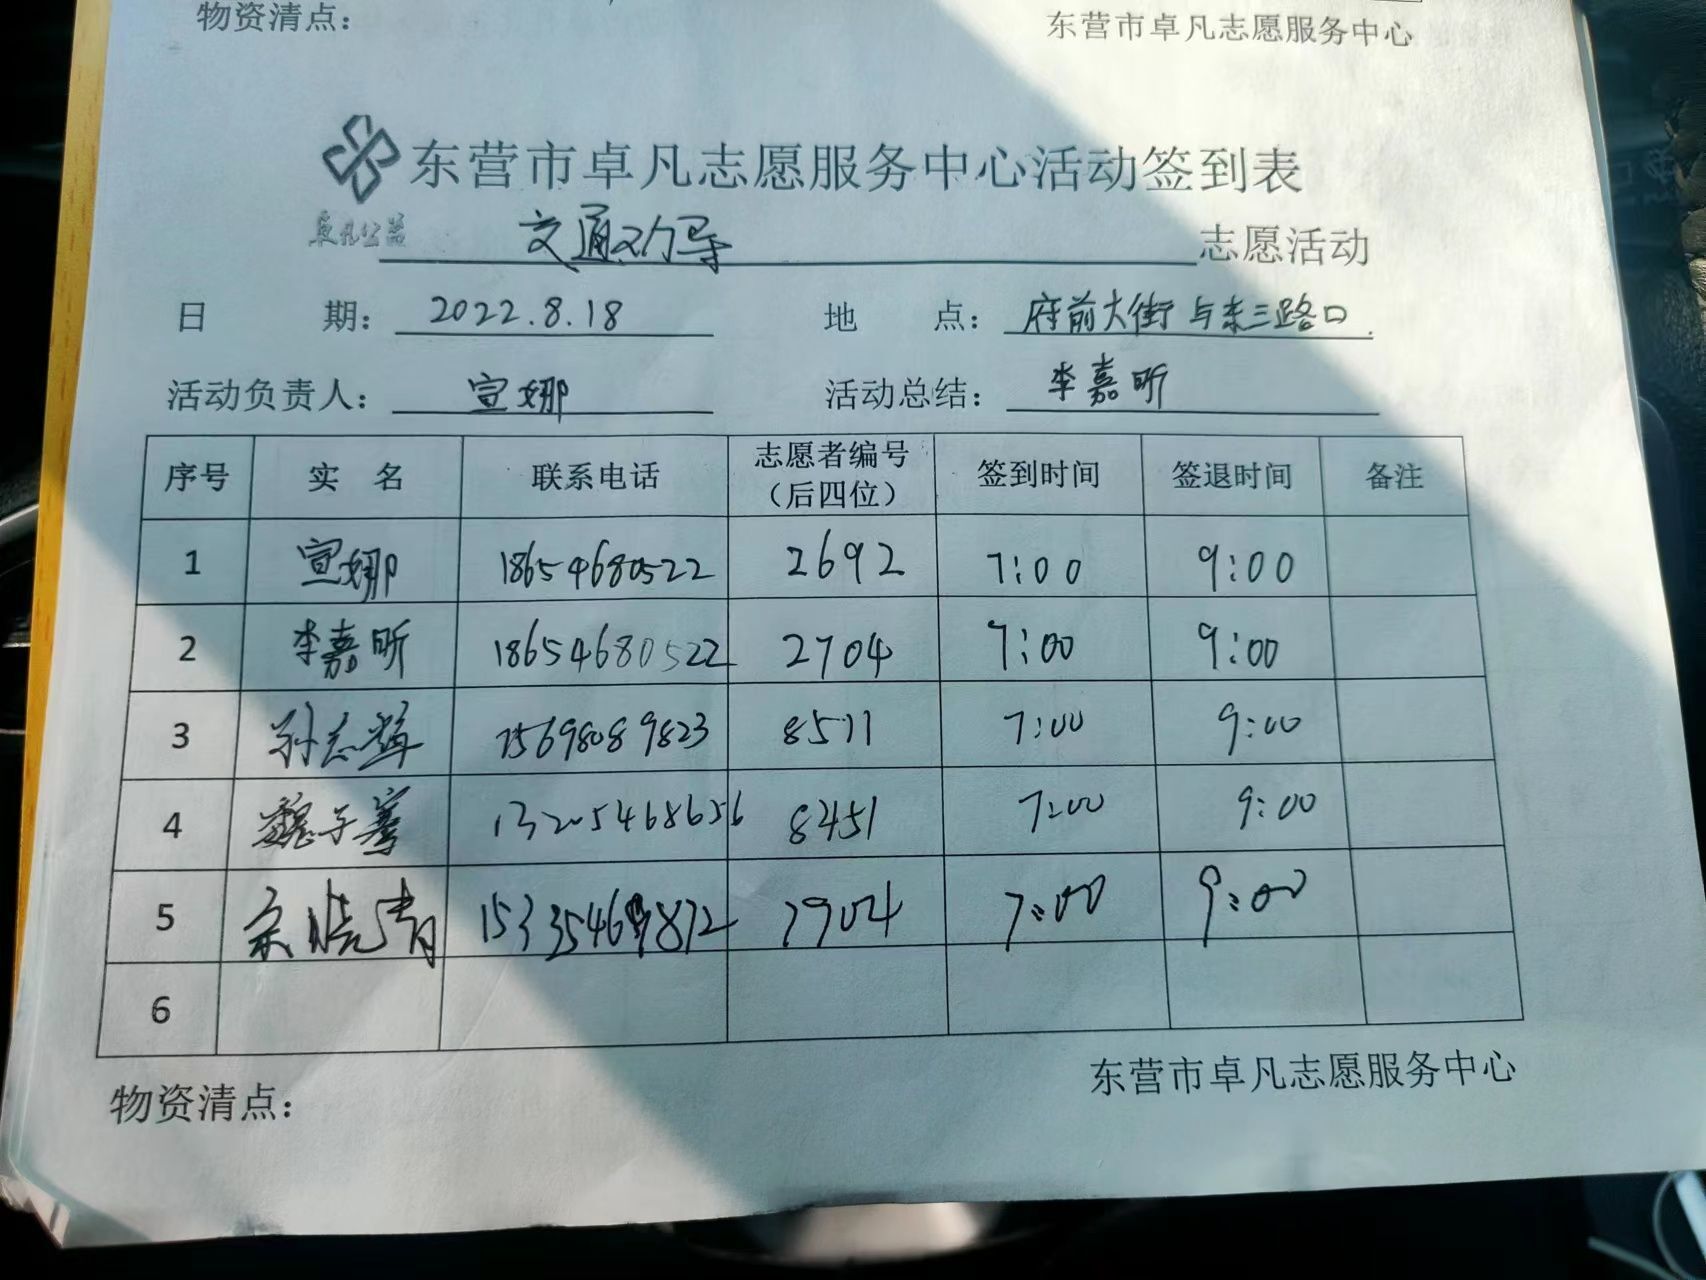 物资清点：
东营市卓凡志愿服务中心
东营市卓凡志愿服务中心活动签到表
卓凡公益
交通劝导 志愿活动
日 期： 2022.8.18 地 点： 府前大街与东三路口
活动负责人： 宣娜 活动总结： 李嘉昕
序号 实 名 联系电话 志愿者编号（后四位） 签到时间 签退时间 备注
1 宣娜 18654680522 2692 7:00 9:00
2 李嘉昕 18654680522 2704 7:00 9:00
3 孙志辉 15698089823 8511 7:00 9:00
4 魏子骞 13205468656 8451 7:00 9:00
5 宗晓青 7904 7:00 9:00
6
物资清点：
东营市卓凡志愿服务中心